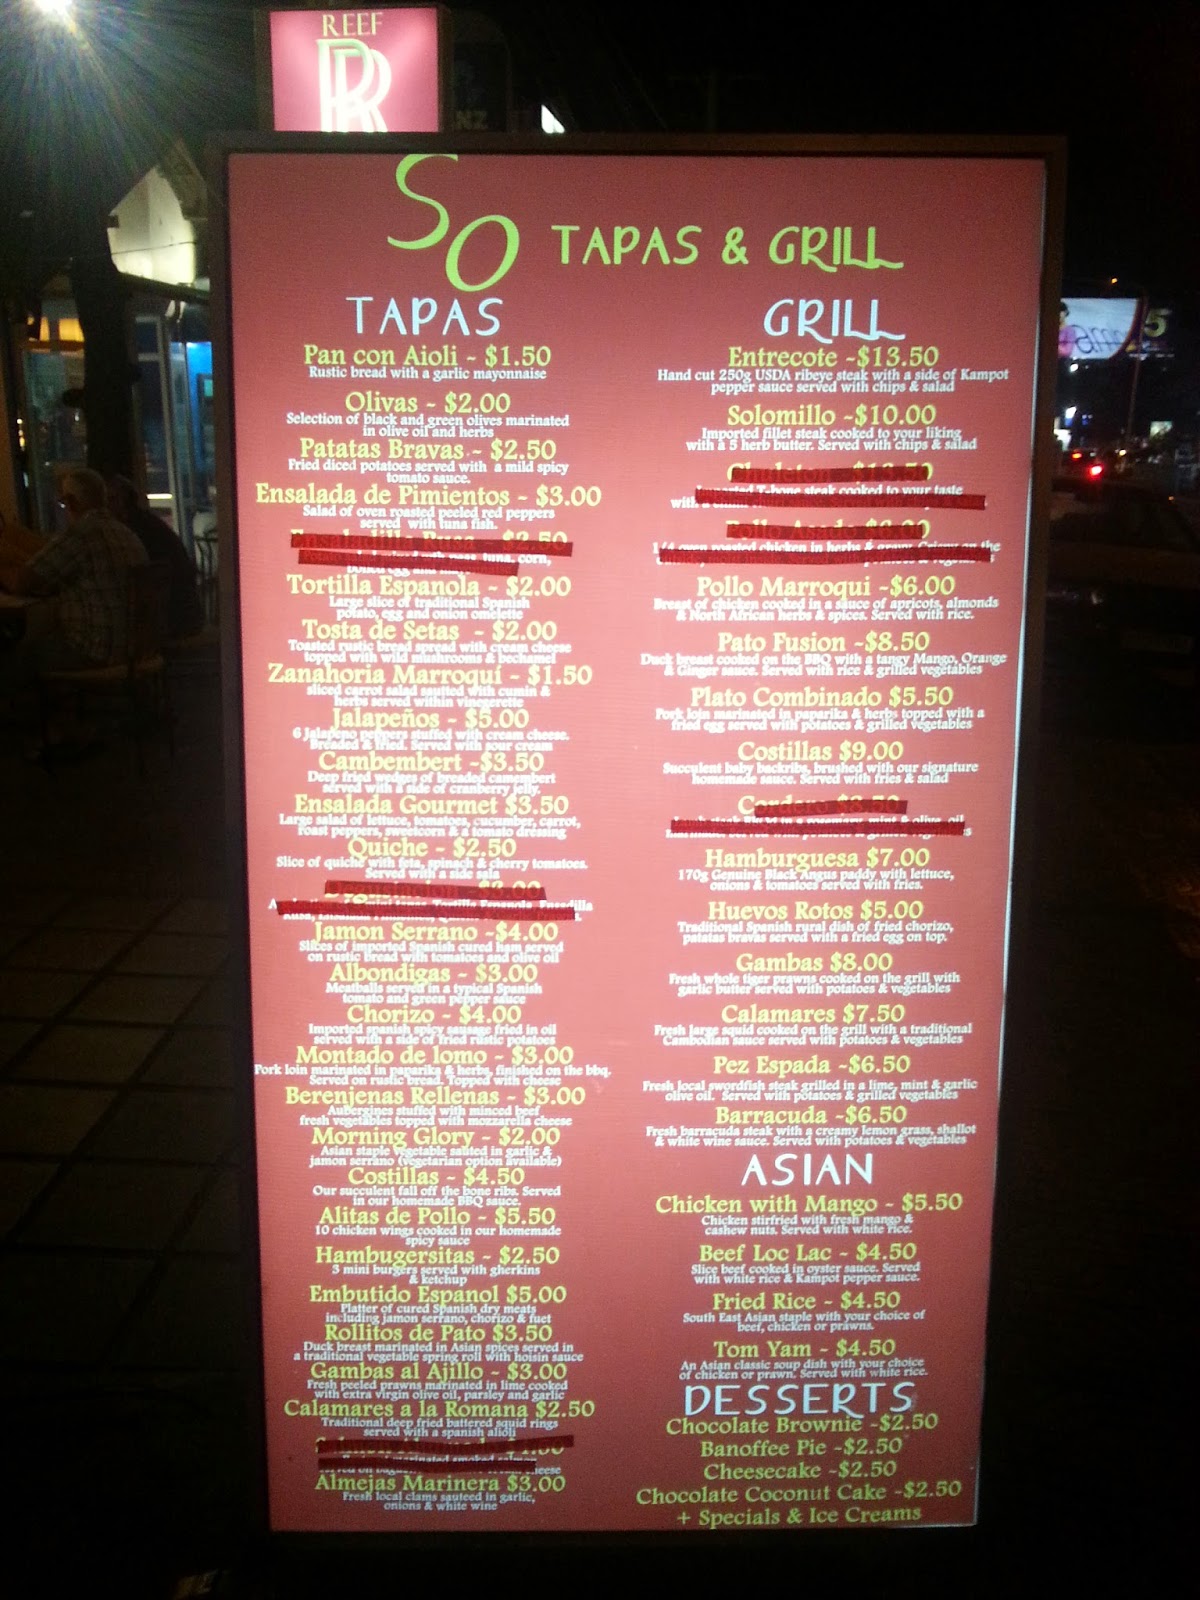 REEF
RR
NZ
SO TAPAS & GRILL
TAPAS
Pan con Aioli - $1.50
Rustic bread with a garlic mayonnaise
Olivas - $2.00
Selection of black and green olives marinated
in olive oil and herbs
Patatas Bravas - $2.50
Fried diced potatoes served with a mild spicy
tomato sauce.
Ensalada de Pimientos - $3.00
Salad of oven roasted peeled red peppers
served with tuna fish.
Tortilla Espanola - $2.00
Large slice of traditional Spanish
potato, egg and onion omelette
Tosta de Setas - $2.00
Toasted rustic bread spread with cream cheese
topped with wild mushrooms & bechamel
Zanahoria Marroqui - $1.50
sliced carrot salad sautted with cumin &
herbs served within vinegerette
Jalapeños - $5.00
6 Jalapeno peppers stuffed with cream cheese.
Breaded & fried. Served with sour cream
Cambembert -$3.50
Deep fried wedges of breaded camembert
served with a side of cranberry jelly.
Ensalada Gourmet $3.50
Large salad of lettuce, tomatoes, cucumber, carrot,
roast peppers, sweetcorn & a tomato dressing
Quiche - $2.50
Slice of quiche with feta, spinach & cherry tomatoes.
Served with a side sala
Jamon Serrano -$4.00
Slices of imported Spanish cured ham served
on rustic bread with tomatoes and olive oil
Albondigas - $3.00
Meatballs served in a typical Spanish
tomato and green pepper sauce
Chorizo - $4.00
Imported spanish spicy sausage fried in oil
served with a side of fried rustic potatoes
Montado de lomo - $3.00
Pork loin marinated in paparika & herbs, finished on the bbq.
Served on rustic bread. Topped with cheese
Berenjenas Rellenas - $3.00
Aubergines stuffed with minced beef
fresh vegetables topped with mozzarella cheese
Morning Glory - $2.00
Asian staple vegetable sauted in garlic &
jamon serrano (vegetarian option available)
Costillas - $4.50
Our succulent fall off the bone ribs. Served
in our homemade BBQ sauce.
Alitas de Pollo - $5.50
10 chicken wings cooked in our homemade
spicy sauce
Hambugersitas - $2.50
3 mini burgers served with gherkins
& ketchup
Embutido Espanol $5.00
Platter of cured Spanish dry meats
including jamon serrano, chorizo & fuet
Rollitos de Pato $3.50
Duck breast marinated in Asian spices served in
a traditional vegetable spring roll with hoisin sauce
Gambas al Ajillo - $3.00
Fresh peeled prawns marinated in lime cooked
with extra virgin olive oil, parsley and garlic
Calamares a la Romana $2.50
Traditional deep fried battered squid rings
served with a spanish alioli
Almejas Marinera $3.00
Fresh local clams sauteed in garlic,
onions & white wine
GRILL
Entrecote -$13.50
Hand cut 250g USDA ribeye steak with a side of Kampot
pepper sauce served with chips & salad
Solomillo -$10.00
Imported fillet steak cooked to your liking
with a 5 herb butter. Served with chips & salad
Imported T-bone steak cooked to your taste
Pollo Asado $6.00
1/4 oven roasted chicken in herbs & gravy. Crispy on the
Pollo Marroqui -$6.00
Breast of chicken cooked in a sauce of apricots, almonds
& North African herbs & spices. Served with rice.
Pato Fusion -$8.50
Duck breast cooked on the BBQ with a tangy Mango, Orange
& Ginger sauce. Served with rice & grilled vegetables
Plato Combinado $5.50
Pork loin marinated in paparika & herbs topped with a
fried egg served with potatoes & grilled vegetables
Costillas $9.00
Succulent baby backribs, brushed with our signature
homemade sauce. Served with fries & salad
Cordero $8.50
Hamburguesa $7.00
170g Genuine Black Angus paddy with lettuce,
onions & tomatoes served with fries.
Huevos Rotos $5.00
Traditional Spanish rural dish of fried chorizo,
patatas bravas served with a fried egg on top.
Gambas $8.00
Fresh whole tiger prawns cooked on the grill with
garlic butter served with potatoes & vegetables
Calamares $7.50
Fresh large squid cooked on the grill with a traditional
Cambodian sauce served with potatoes & vegetables
Pez Espada -$6.50
Fresh local swordfish steak grilled in a lime, mint & garlic
olive oil. Served with potatoes & grilled vegetables
Barracuda -$6.50
Fresh barracuda steak with a creamy lemon grass, shallot
& white wine sauce. Served with potatoes & vegetables
ASIAN
Chicken with Mango - $5.50
Chicken stirfried with fresh mango &
cashew nuts. Served with white rice.
Beef Loc Lac - $4.50
Slice beef cooked in oyster sauce. Served
with white rice & Kampot pepper sauce.
Fried Rice - $4.50
South East Asian staple with your choice of
beef, chicken or prawns.
Tom Yam - $4.50
An Asian classic soup dish with your choice
of chicken or prawn. Served with white rice.
DESSERTS
Chocolate Brownie -$2.50
Banoffee Pie -$2.50
Cheesecake -$2.50
Chocolate Coconut Cake -$2.50
+ Specials & Ice Creams